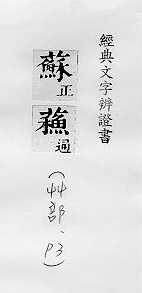 經典文字辨證書
蘇正
蘓通
(艸部、P3)